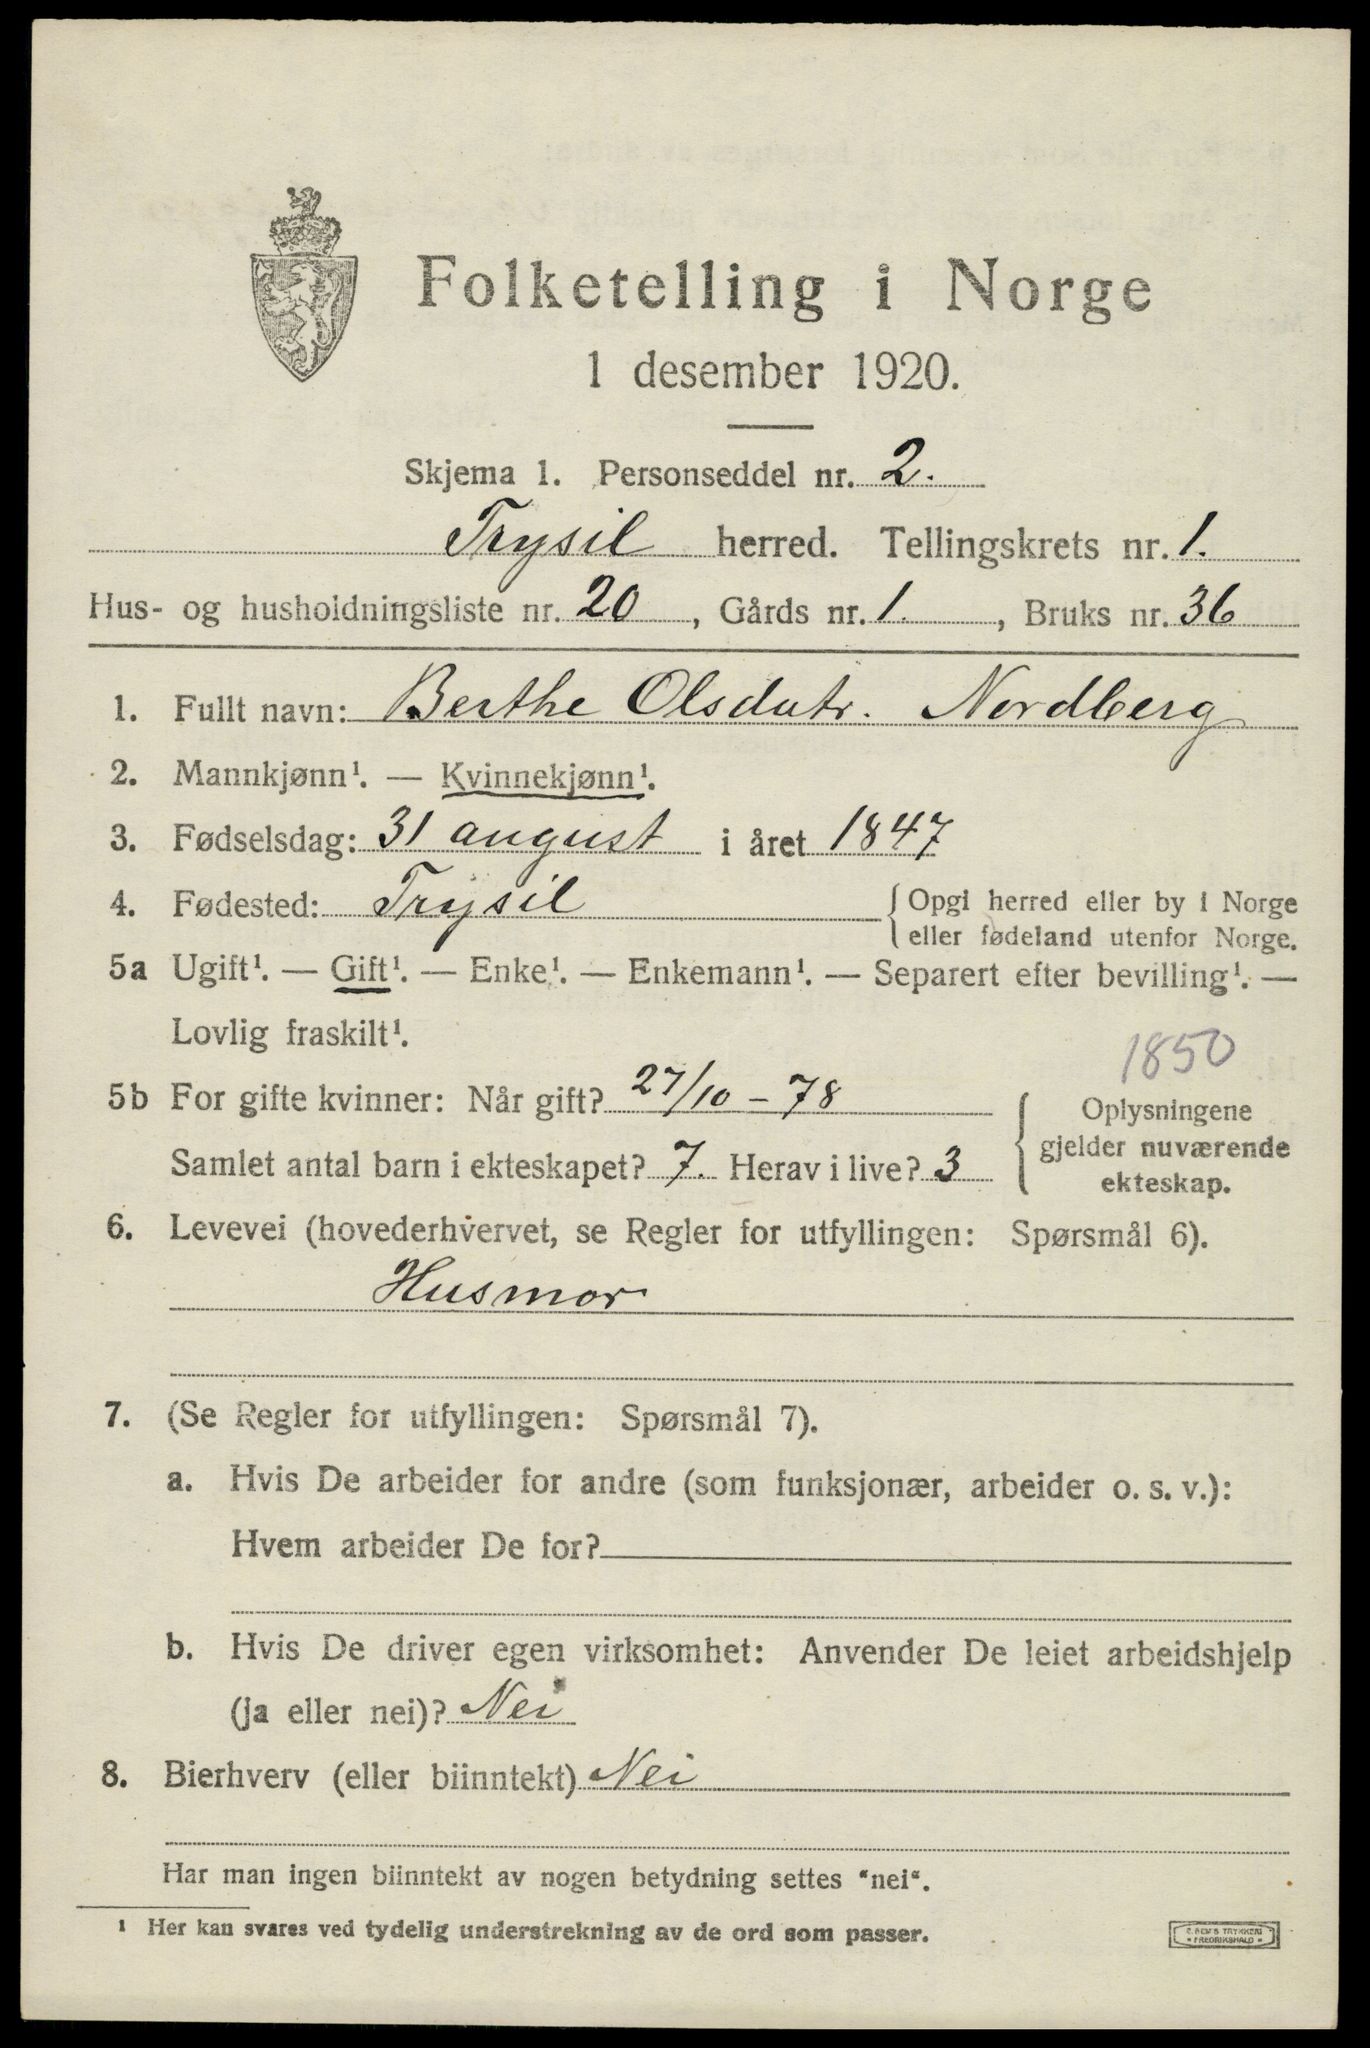 Folketelling i Norge
1 desember 1920.
Skjema 1. Personseddel nr. 2.
Trysil herred. Tellingskrets nr. 1.
Hus- og husholdningsliste nr. 20, Gårds nr. 1., Bruks nr. 36
1. Fullt navn: Berthe Olsdatr. Nordberg
2. Mannkjønn¹. — Kvinnekjønn¹.
3. Fødselsdag: 31 august i året 1847
4. Fødested: Trysil {Opgi herred eller by i Norge
eller fødeland utenfor Norge.
5a Ugift¹. — Gift¹. — Enke¹. — Enkemann¹. — Separert efter bevilling¹. —
Lovlig fraskilt¹.
1850
5b For gifte kvinner: Når gift? 27/10 – 78
Samlet antal barn i ekteskapet? 7. Herav i live? 3
Oplysningene
gjelder nuværende
ekteskap.
6. Levevei (hovederhvervet, se Regler for utfyllingen: Spørsmål 6).
Husmor
7. (Se Regler for utfyllingen: Spørsmål 7).
a. Hvis De arbeider for andre (som funksjonær, arbeider o. s. v.):
Hvem arbeider De for?
b. Hvis De driver egen virksomhet: Anvender De leiet arbeidshjelp
(ja eller nei)? Nei
8. Bierhverv (eller biinntekt) Nei
Har man ingen biinntekt av nogen betydning settes "nei".
¹ Her kan svares ved tydelig understrekning av de ord som passer.
TRYKKERI
FREDRIKSHALD